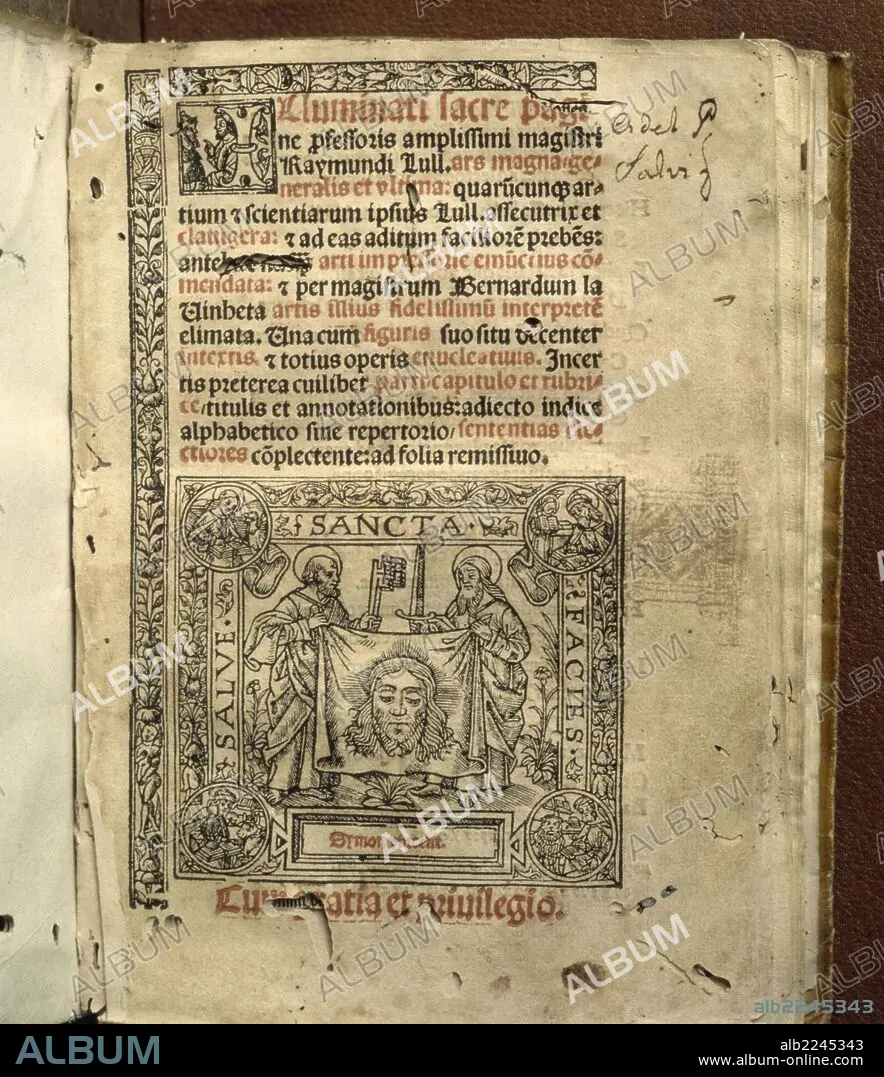 Illuminati sacre pagi-
ne ꝓfessoris amplissimi magistri
Raymundi Lull. ars magna: ge-
neralis et vltima: quarũcunqꝫ ar-
tium ⁊ scientiarum ipsius Lull. assecutrix et
clauigera: ⁊ ad eas aditum faciliorẽ prebẽs:
ante arti impressorie emũctius cõ-
mendata: ⁊ per magistrum Bernardum la
Uinheta artis illius fidelissimũ interpretẽ
elimata. Una cum figuris suo situ decenter
intextis. ⁊ totius operis enucleatiuis. Incer
tis preterea cuilibet parti capitulo et rubri-
ce/titulis et annotationibus: adiecto indice
alphabetico siue repertorio/sententias
complectente: ad folia remissiuo.
del P.
Salvi
SANCTA.
SALVE.
FACIES.
Cum gratia et priuilegio.
ALBUM
alb2245343
ALBUM
alb2245343
www.album-online.com